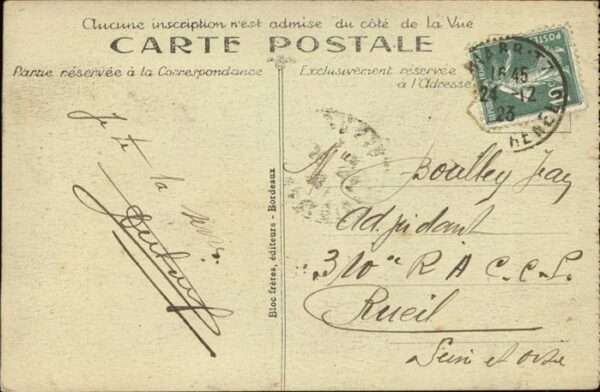 Aucune inscription n'est admise du côté de la Vue
CARTE POSTALE
Partie réservée à la Correspondance
Exclusivement réservée
à l'Adresse
POSTES
16 45
21 - 12
23
Je te la
Bloc frères, éditeurs - Bordeaux
Boulley Jean
Adjudant
310e R A C. C. L.
Rueil
Seine et Oise